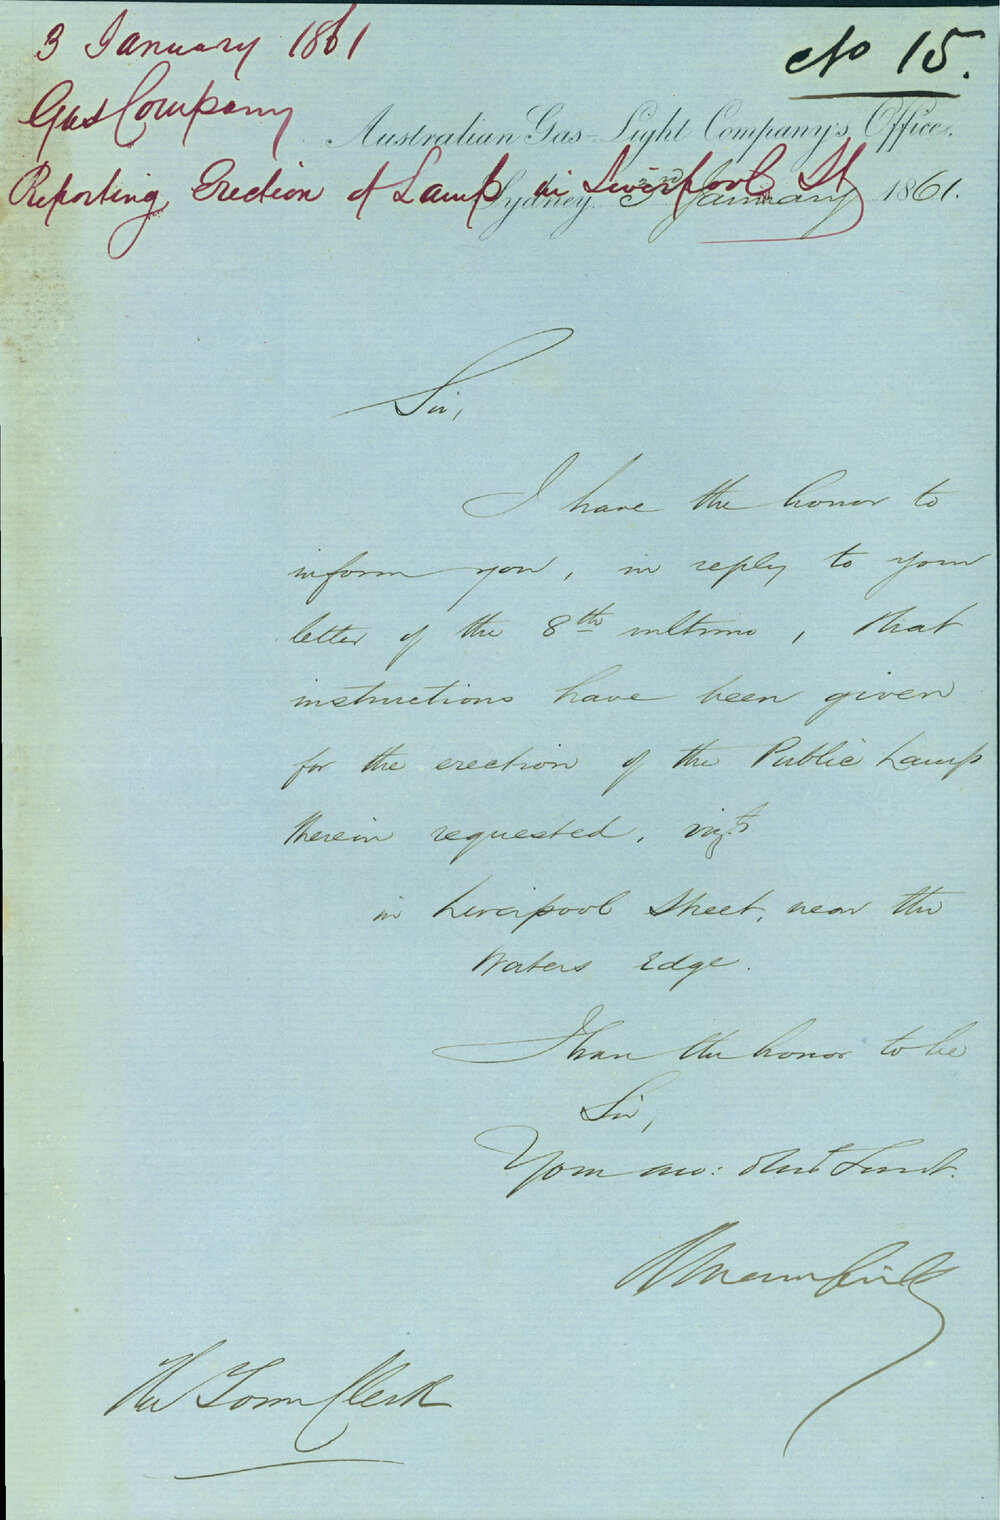 3 January 1861
No 15.
Gas Company
Australian Gas-Light Company's Office.
Reporting Erection of Lamp in Liverpool St
Sydney 3rd January 1861.
Sir,
I have the honor to
inform you, in reply to your
letter of the 8th ultimo, that
instructions have been given
for the erection of the Public Lamp
therein requested, vizt
in Liverpool Street, near the
Waters Edge.
I have the honor to be
Sir,
Your mo: Obdt Servt.
The Town Clerk